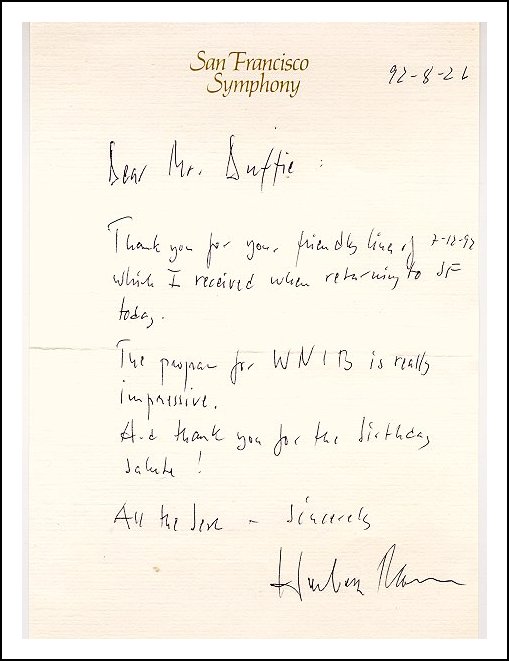 San Francisco
Symphony
92-8-26
Dear Mr. Duffie :
Thank you for your friendly lines of 7-12-92
which I received when returning to SF
today.
The program for WNIB is really
impressive.
And thank you for the birthday
salute !
All the best - Sincerely
Herbert Blomstedt